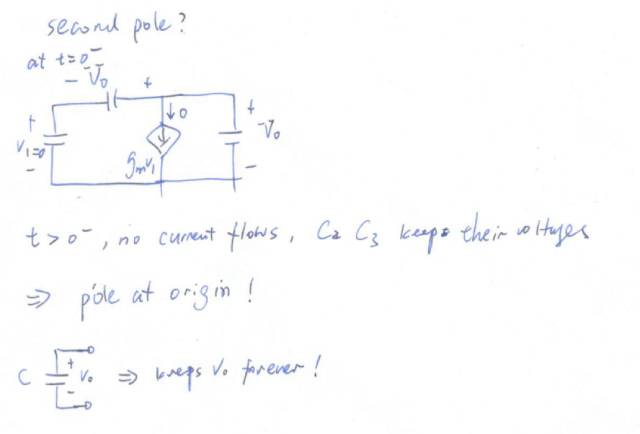 second pole?
at t=0⁻
- V₀ +
+ V₁=0 -
↓0
gₘv₁
+ V₀ -
t>0⁻, no current flows, C₂ C₃ keeps their voltages
⇒ pole at origin!
C + V₀ - ⇒ keeps V₀ forever!